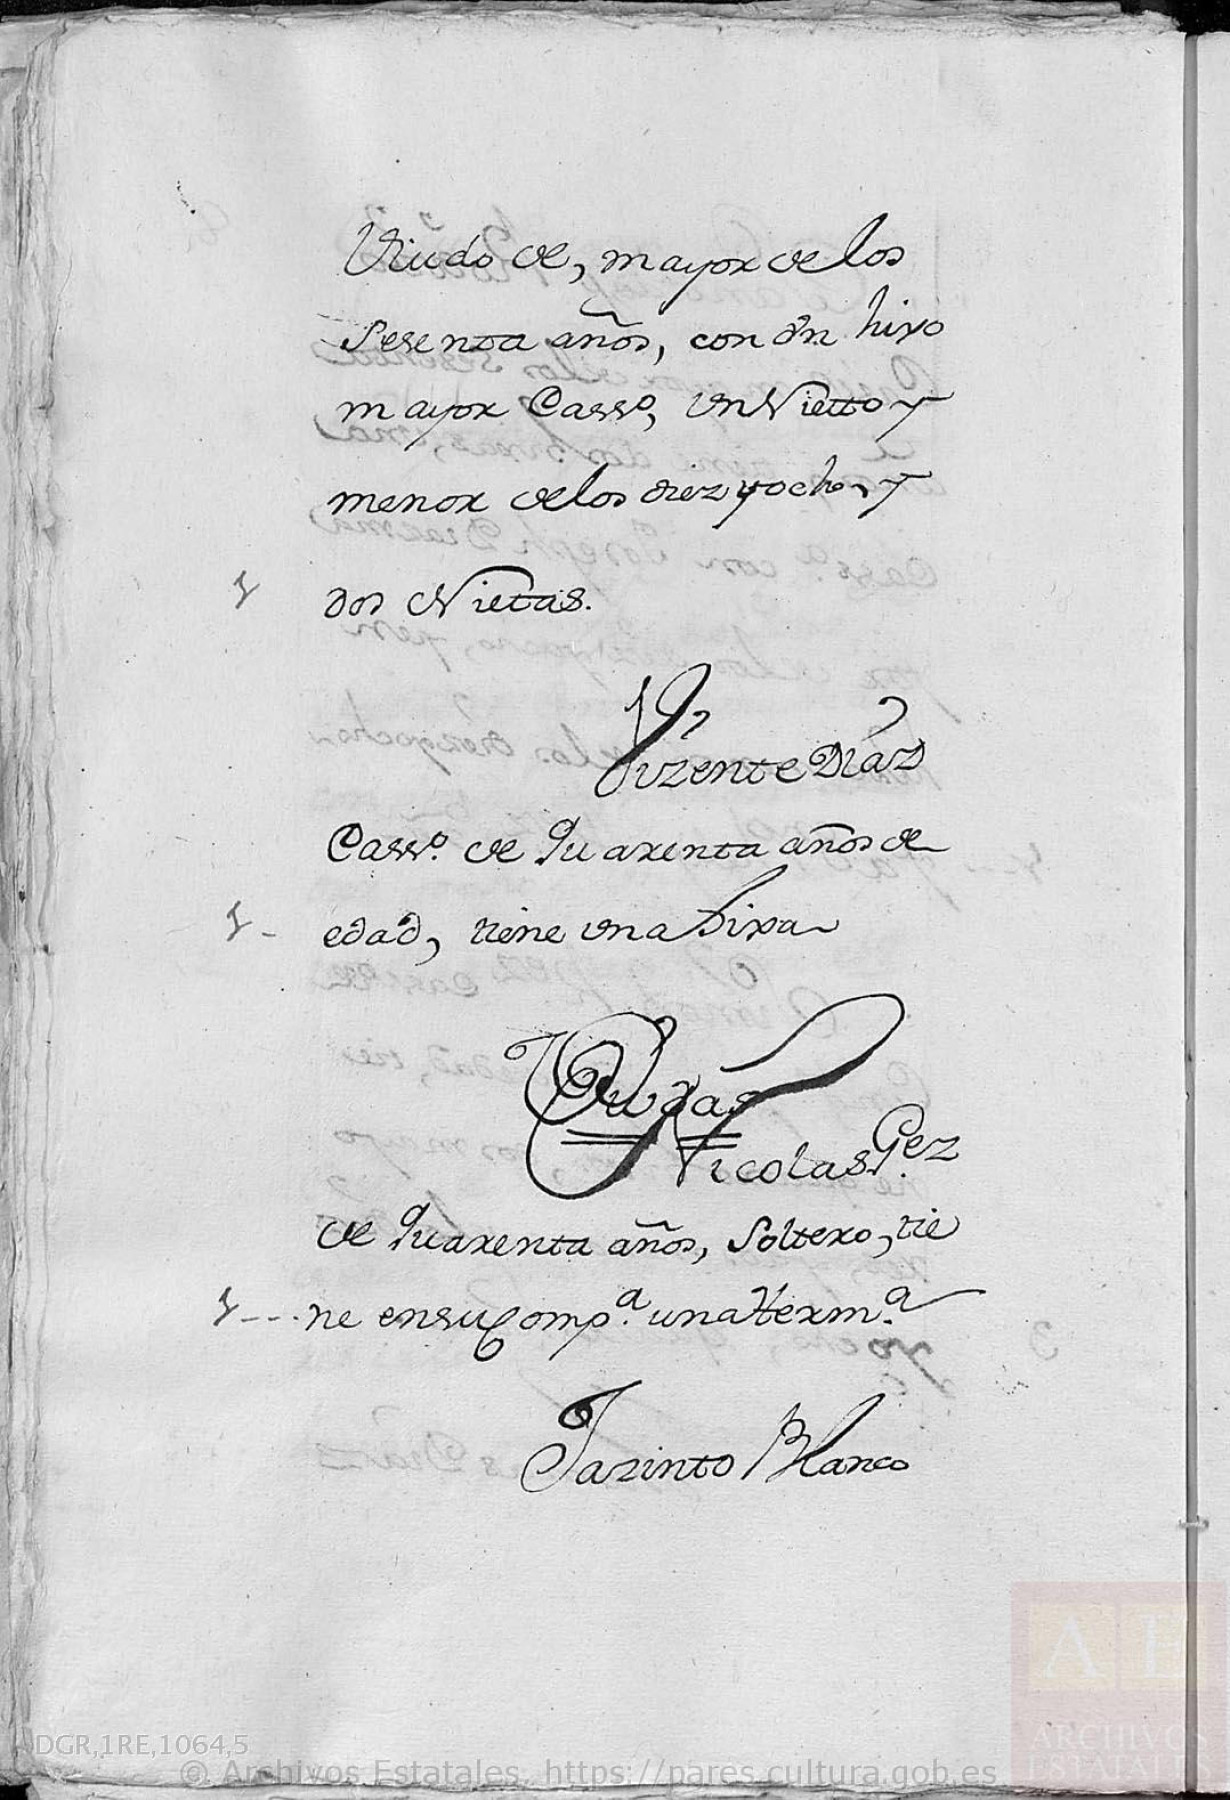 Viudo de, mayor de los
Sesenta años, con un hixo
mayor Cassº, un Nietto y
menor de los diez y ocho, y
1 dos Nietas.
Vizente Diaz
Cassº. de Quarenta años de
1 - edad, tiene una hixa
Nicolas Gez
de Quarenta años, Soltero, tie
1 - - - ne en su Compª. una Hermª.
Jazinto Blanco
DGR,1RE,1064,5
© Archivos Estatales, https://pares.cultura.gob.es
AE
ARCHIVOS
ESTATALES